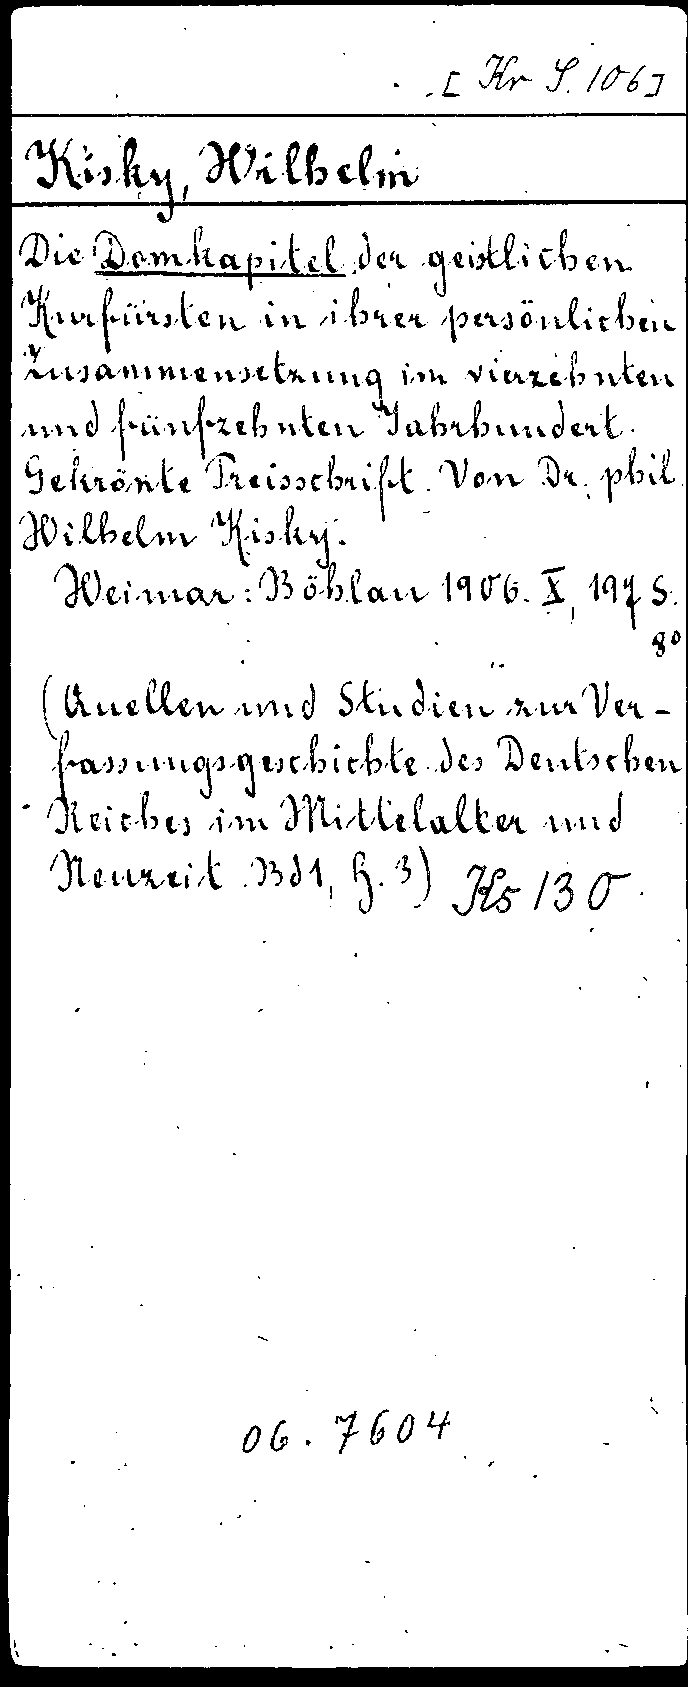 [Kr S. 106]
Kisky, Wilhelm
Die Domkapitel der geistlichen
Kurfürsten in ihrer persönlichen
Zusammensetzung im vierzehnten
und fünfzehnten Jahrhundert.
Gekrönte Preisschrift. Von Dr. phil.
Wilhelm Kisky.
Weimar: Böhlau 1906. X, 197 S.
8°
(Quellen und Studien zur Ver-
fassungsgeschichte des Deutschen
Reiches im Mittelalter und
Neuzeit. Bd 1, H. 3) Ks 130
06.7604